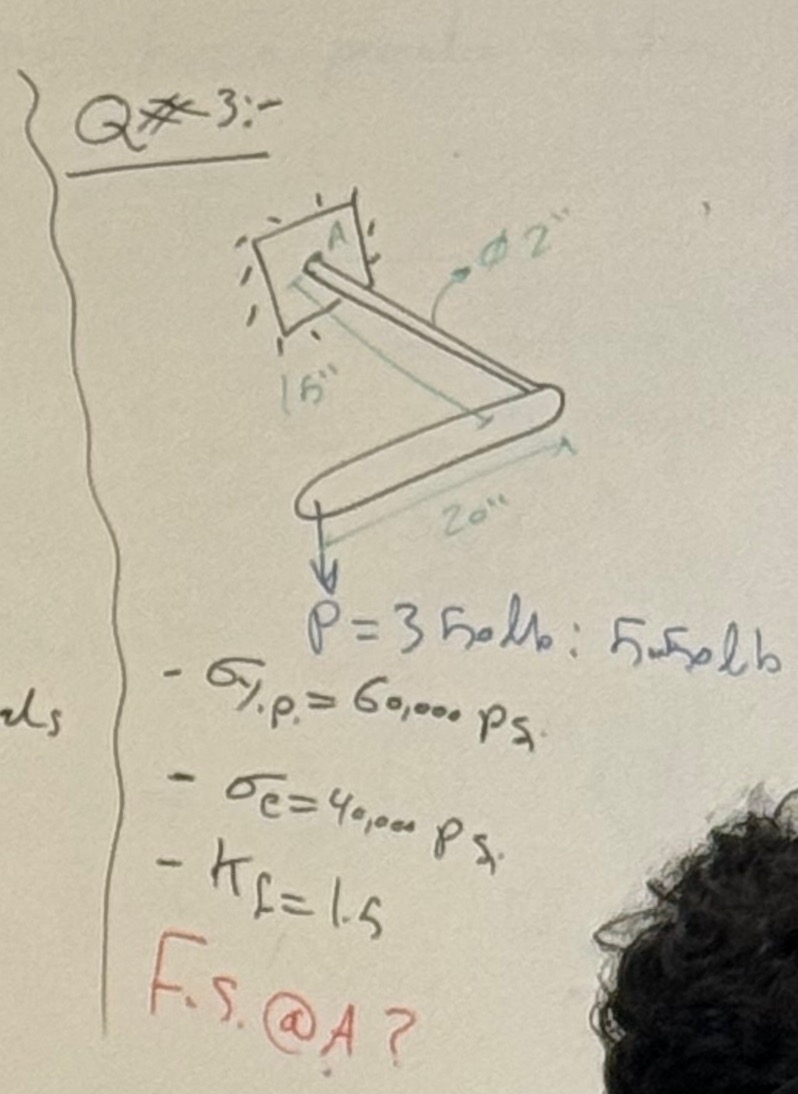 Q#3:-
A
Ø 2"
15"
20"
P = 350lb : 550lb
- σy.p. = 60,000 psi
als
- σe = 40,000 psi
- Kf = 1.5
F.s. @ A ?